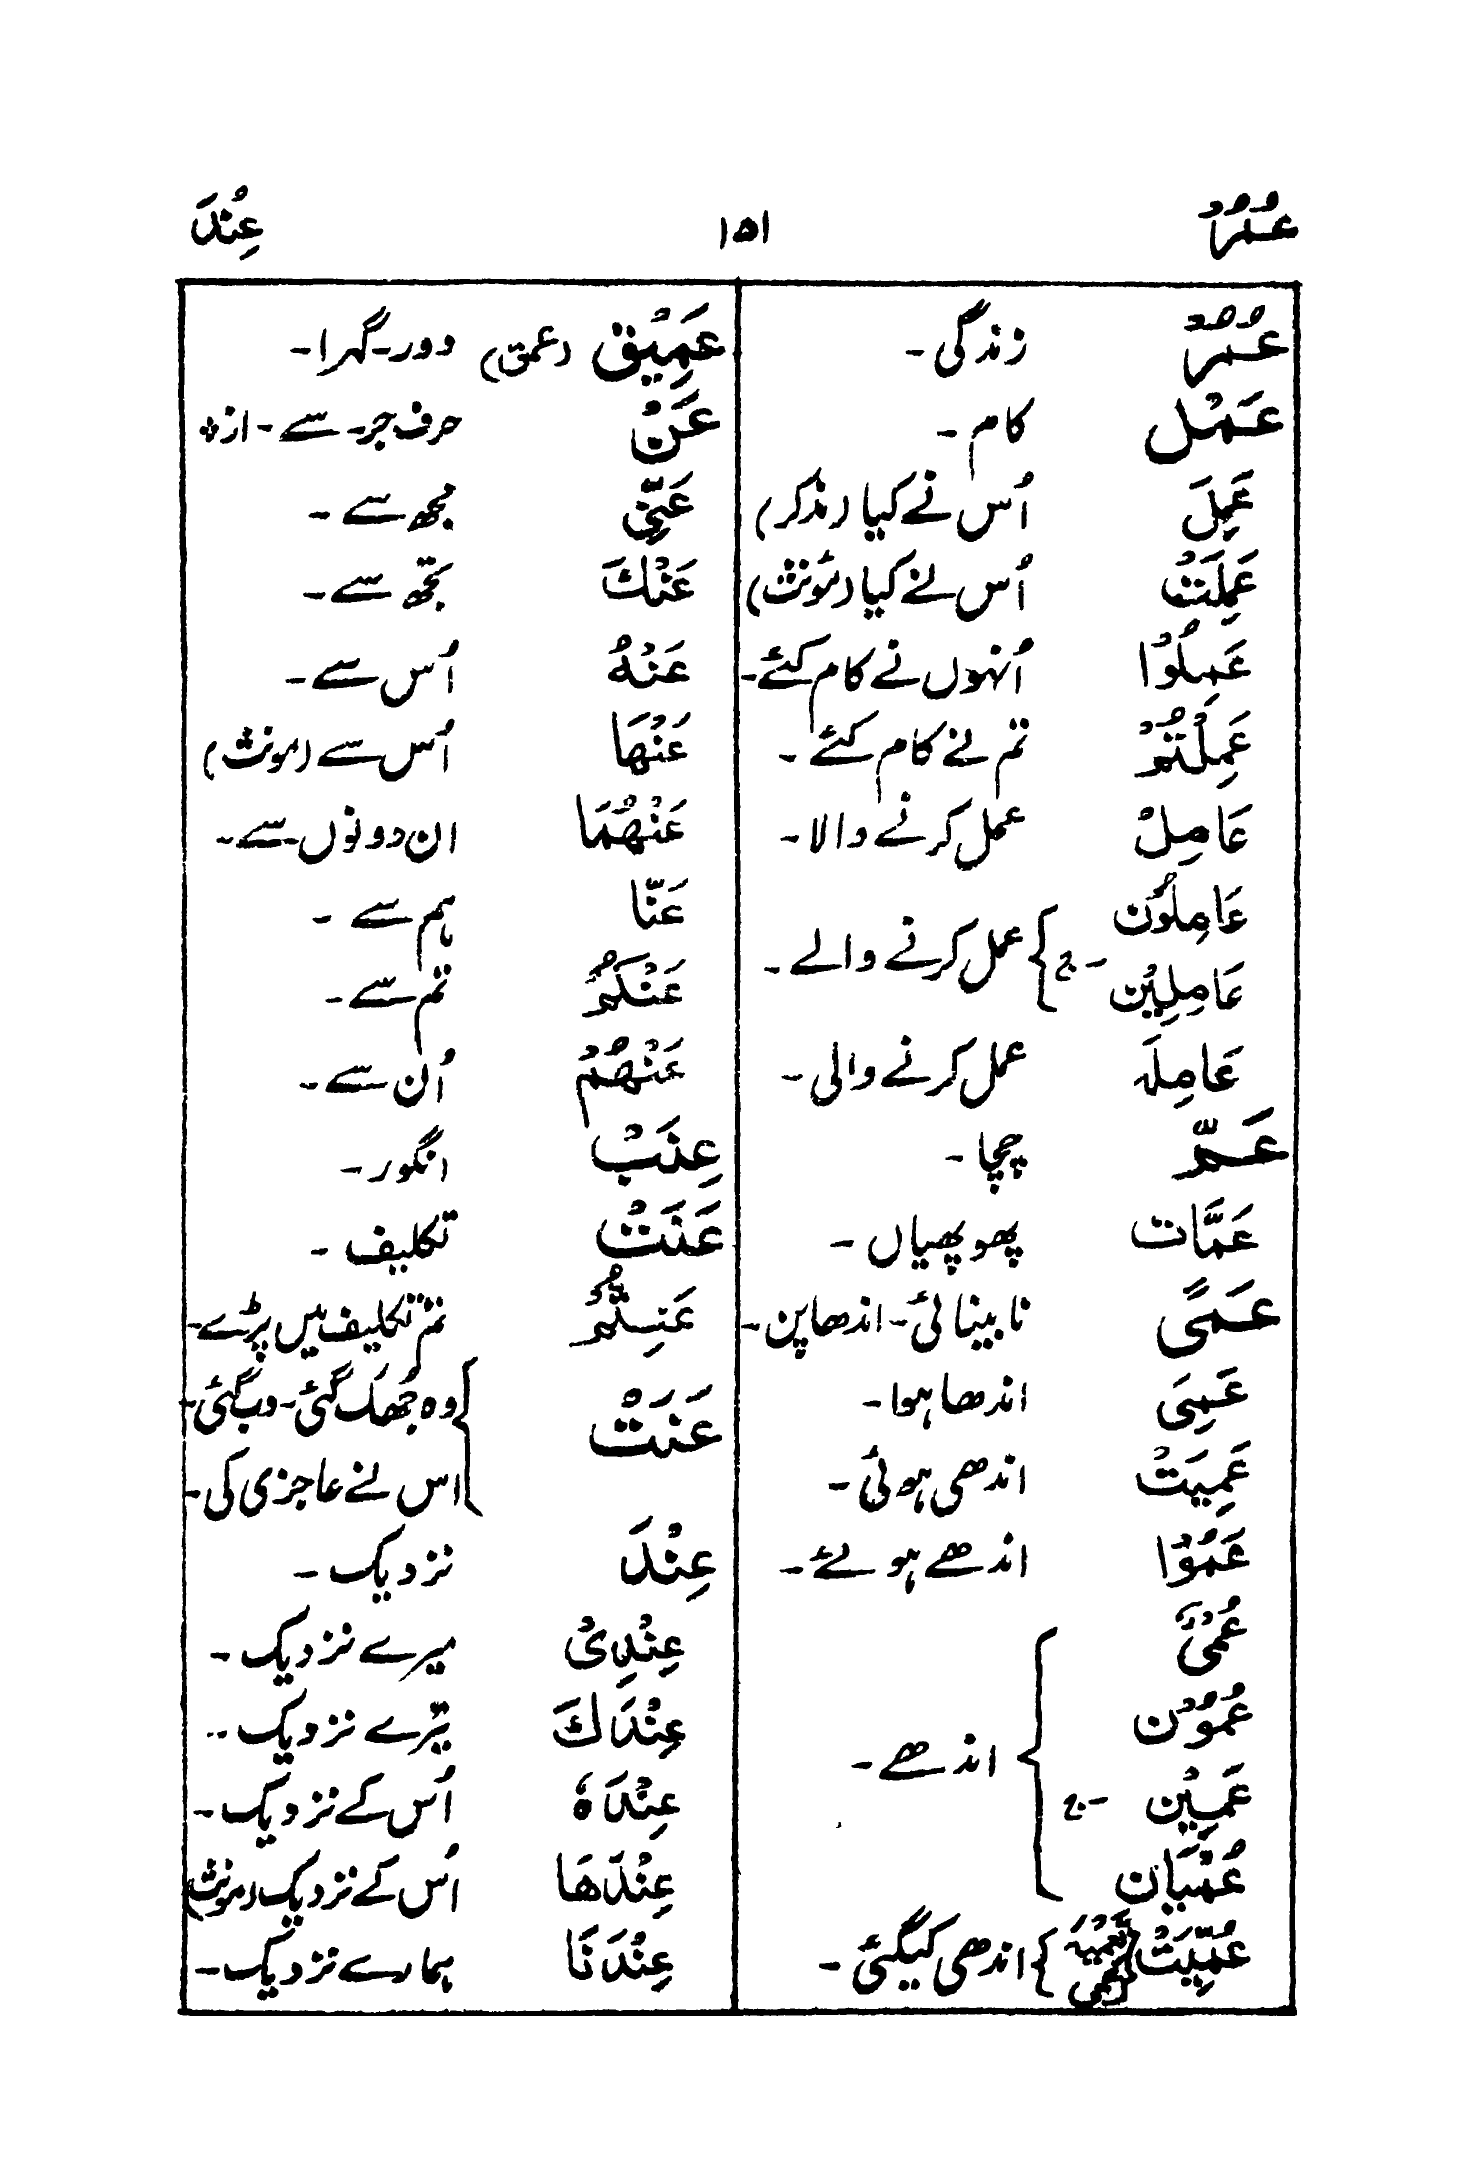 عُمُرْ ۱۵۱ عِنْدَ
عُمُرْ زندگی ۔
عَمَلْ کام ۔
عَمِلَ اُس نے کیا (مذکر)
عَمِلَتْ اُس نے کیا (مؤنث)
عَمِلُوْا اُنہوں نے کام کئے ۔
عَمِلْتُمْ تم نے کام کئے ۔
عَامِلْ عمل کرنے والا ۔
عَامِلُوْن
عَامِلِیْن ۔ ج } عمل کرنے والے ۔
عَامِلَہ عمل کرنے والی ۔
عَمّ چچا ۔
عَمَّات پھوپھیاں ۔
عَمًی نابینائی ۔ اندھاپن ۔
عَمِیَ اندھا ہوا ۔
عَمِیَتْ اندھی ہوئی ۔
عَمُوْا اندھے ہوئے ۔
عُمْیٌ
عُمُوْن
عَمِیْن ۔ ج } اندھے ۔
عُمْیَان
عُمِّیَتْ (تَعْمِیَہ) } اندھی کیگئی ۔
عَمِیْق (عمق) دور ۔ گہرا ۔
عَنْ حرف جر ۔ سے ۔ از ؞
عَنِّی مجھ سے ۔
عَنْكَ تجھ سے ۔
عَنْهُ اُس سے ۔
عَنْهَا اُس سے (مونث)
عَنْهُمَا ان دونوں سے ۔
عَنَّا ہم سے ۔
عَنْكُمْ تم سے ۔
عَنْهُمْ اُن سے ۔
عِنَبْ انگور ۔
عَنَتْ تکلیف ۔
عَنِتُّمْ تم تکلیف میں پڑے ۔
عَنَتْ { وہ جُھک گئی ۔ دب گئی ۔
اس نے عاجزی کی ۔
عِنْدَ نزدیک ۔
عِنْدِیْ میرے نزدیک ۔
عِنْدَكَ تیرے نزدیک ۔
عِنْدَہٗ اُس کے نزدیک ۔
عِنْدَهَا اُس کے نزدیک (مونث)
عِنْدَنَا ہمارے نزدیک ۔